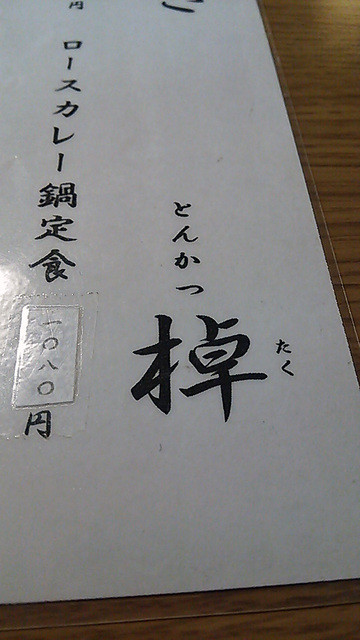 とんかつ
棹
たく
ロースカレー鍋定食
一〇八〇円
円